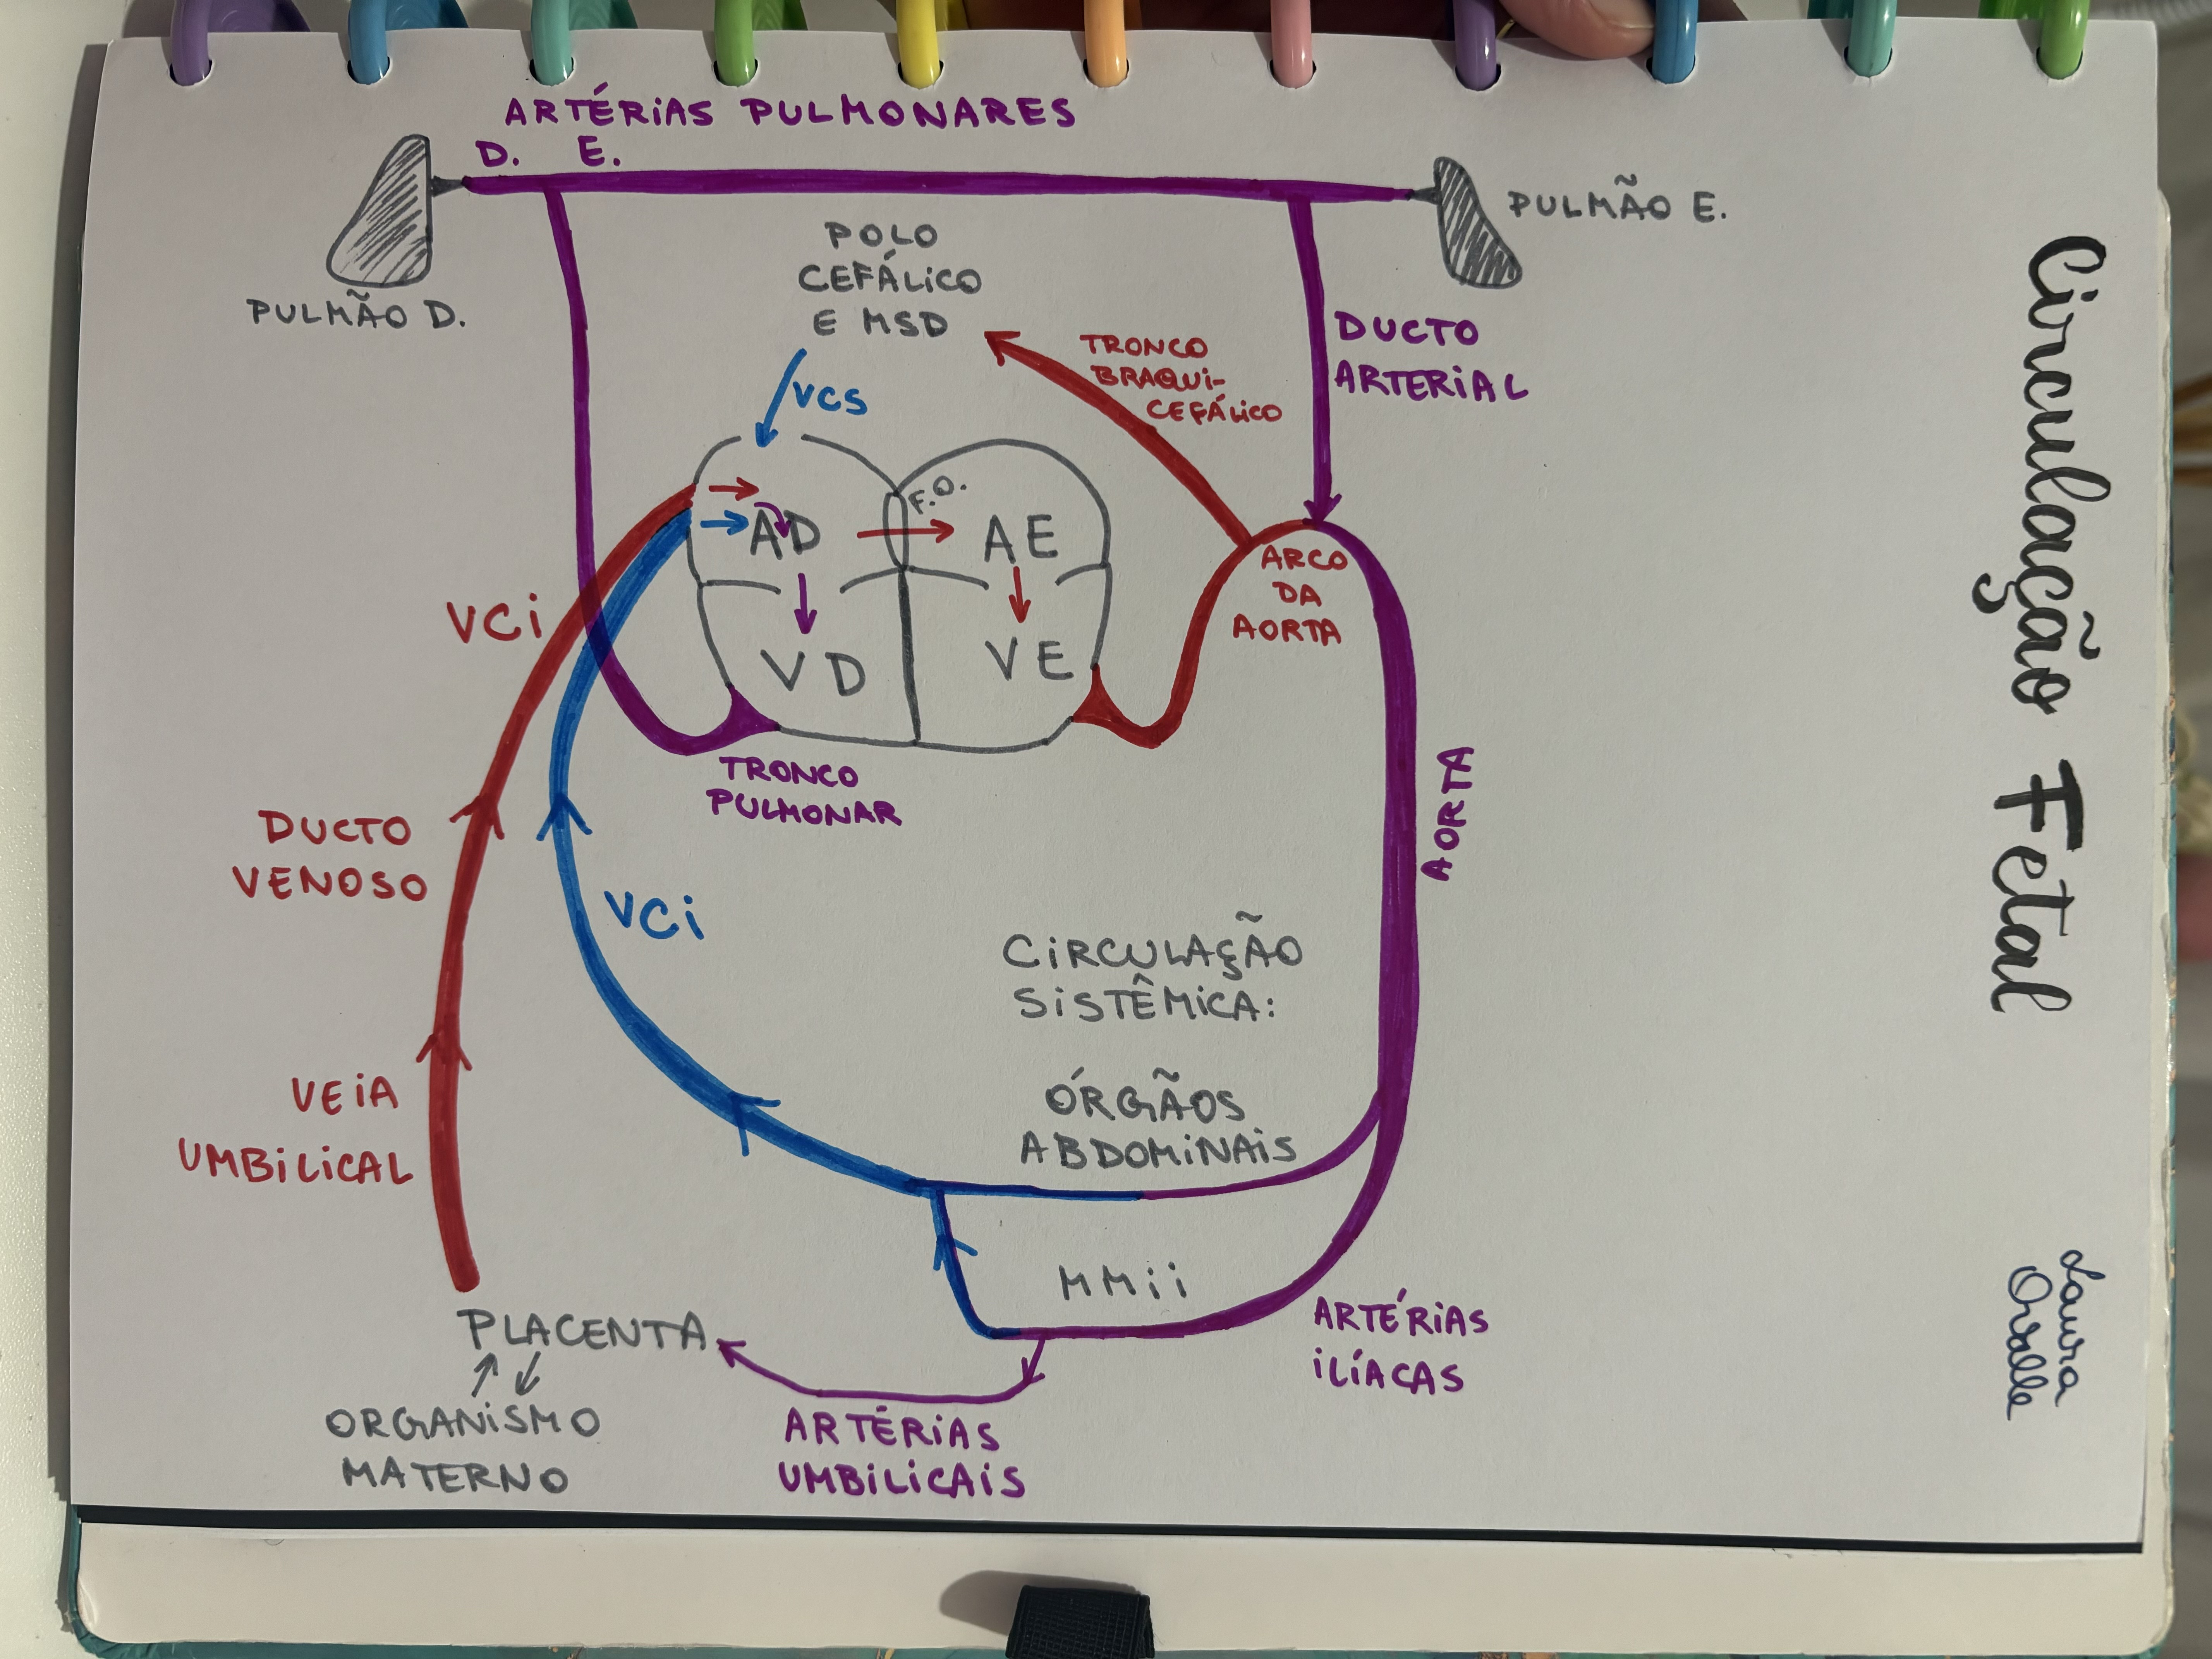 ARTÉRIAS PULMONARES
D. E.
PULMÃO D.
PULMÃO E.
POLO
CEFÁLICO
E MSD
VCS
TRONCO
BRAQUI-
CEFÁLICO
DUCTO
ARTERIAL
F.O.
AD
AE
VD
VE
ARCO
DA
AORTA
VCi
TRONCO
PULMONAR
DUCTO
VENOSO
VCi
AORTA
CIRCULAÇÃO
SISTÊMICA:
ÓRGÃOS
ABDOMINAIS
VEIA
UMBILICAL
MMii
ARTÉRIAS
ILÍACAS
PLACENTA
ORGANISMO
MATERNO
ARTÉRIAS
UMBILICAIS
Circulação Fetal
Laura
Ovalle